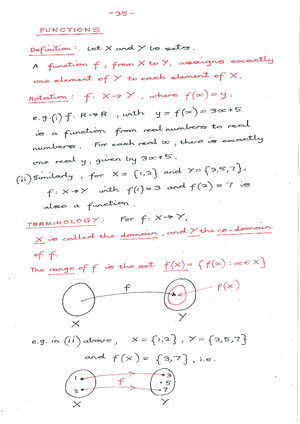 -35-
FUNCTIONS
Definition: Let X and Y be sets.
A function f, from X to Y, assigns exactly
one element of Y to each element of X.
Notation: f: X→Y, where f(x)=y.
e.g. (i) f: R→R, with y = f(x) = 3x+5
is a function from real numbers to real
numbers. For each real x, there is exactly
one real y, given by 3x+5.
(ii) Similarly, for X = {1,2} and Y={3,5,7},
f: X→Y with f(1)=3 and f(2)=7 is
also a function.
TERMINOLOGY: For f: X→Y,
X is called the domain, and Y the co-domain
of f.
The range of f is the set f(X) = {f(x): x∈X}
f
f(X)
X Y
e.g. in (ii) above, X = {1,2}, Y = {3,5,7}
and f(X) = {3,7}, i.e.
1 3
f 5
2 7
X Y